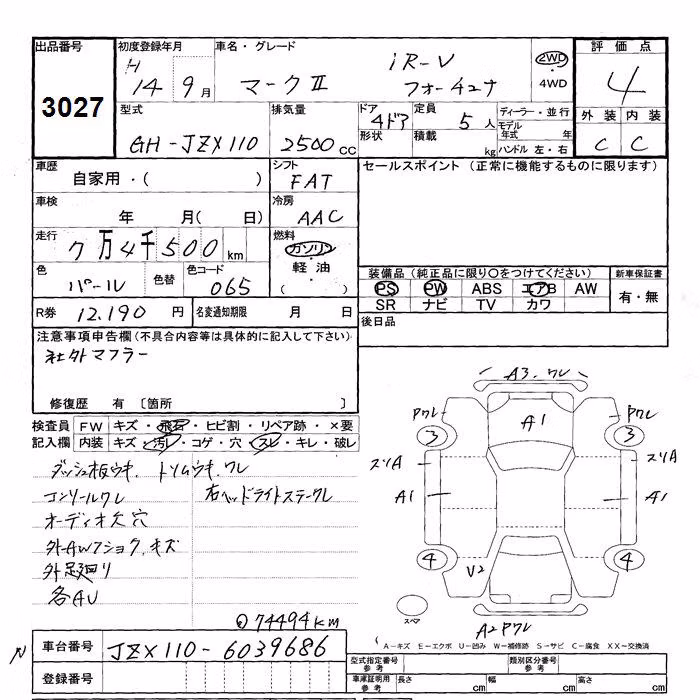 出品番号 初度登録年月 車名・グレード 評価点
3027 H 14 9月 マークⅡ iR-V フォーチュナ 2WD ・ 4WD 4
型式 排気量 ドア 定員 ディーラー・並行 外装 内装
GH-JZX110 2500cc 4ドア 5人 モデル年式 年 C C
形状 積載 kg ハンドル 左・右
車歴 シフト セールスポイント (正常に機能するものに限ります)
自家用・( ) FAT
車検 冷房
年 月( 日) AAC
走行 燃料
7万4千500km ガソリン
・
軽油
( )
色 色替 色コード 装備品(純正品に限り○をつけてください) 新車保証書
パール 065 PS PW ABS エアB AW 有・無
SR ナビ TV カワ
R券 12.190円 名変通知期限 月 日 後日品
注意事項申告欄(不具合内容等は具体的に記入して下さい)
社外マフラー
修復歴 有 〔箇所 〕
検査員 FW キズ・飛石・ヒビ割・リペア跡・×要
記入欄 内装 キズ・汚レ・コゲ・穴・スレ・キレ・破レ
ダッシュ板ウキ、トリムウキ、ワレ
コンソールワレ 右ヘッドライトステーワレ
オーディオ欠穴
外AWフショク、キズ
外足廻り
各AU
74494km
A3.ワレ
Pワレ A1 Pワレ
3 3
スリA スリA
A1 A1
4 4
V2
スペア
A2Pワレ
A-キズ E-エクボ U-凹み W-補修跡 S-サビ C-腐食 XX-交換済
N 車台番号 JZX110-6039686
型式指定番号 参考 類別区分番号 参考
登録番号 車庫証明用 参考 長さ cm 幅 cm 高さ cm